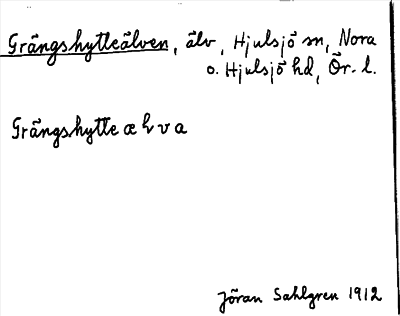 Grängshytteälven, älv, Hjulsjö sn, Nora
o. Hjulsjö hd, Ör. l.
Grängshytte æ l v a
Jöran Sahlgren 1912